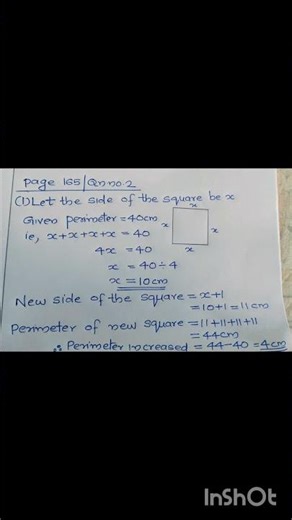 Page 165/Qn no.2
(1) Let the side of the square be x
x
Given perimeter = 40cm
x
x
ie, x+x+x+x = 40
4x = 40
x
x = 40÷4
x = 10cm
New side of the square = x+1
= 10+1 = 11cm
Perimeter of new square = 11+11+11+11
= 44cm
∴ Perimeter increased = 44-40 = 4cm
InShOt